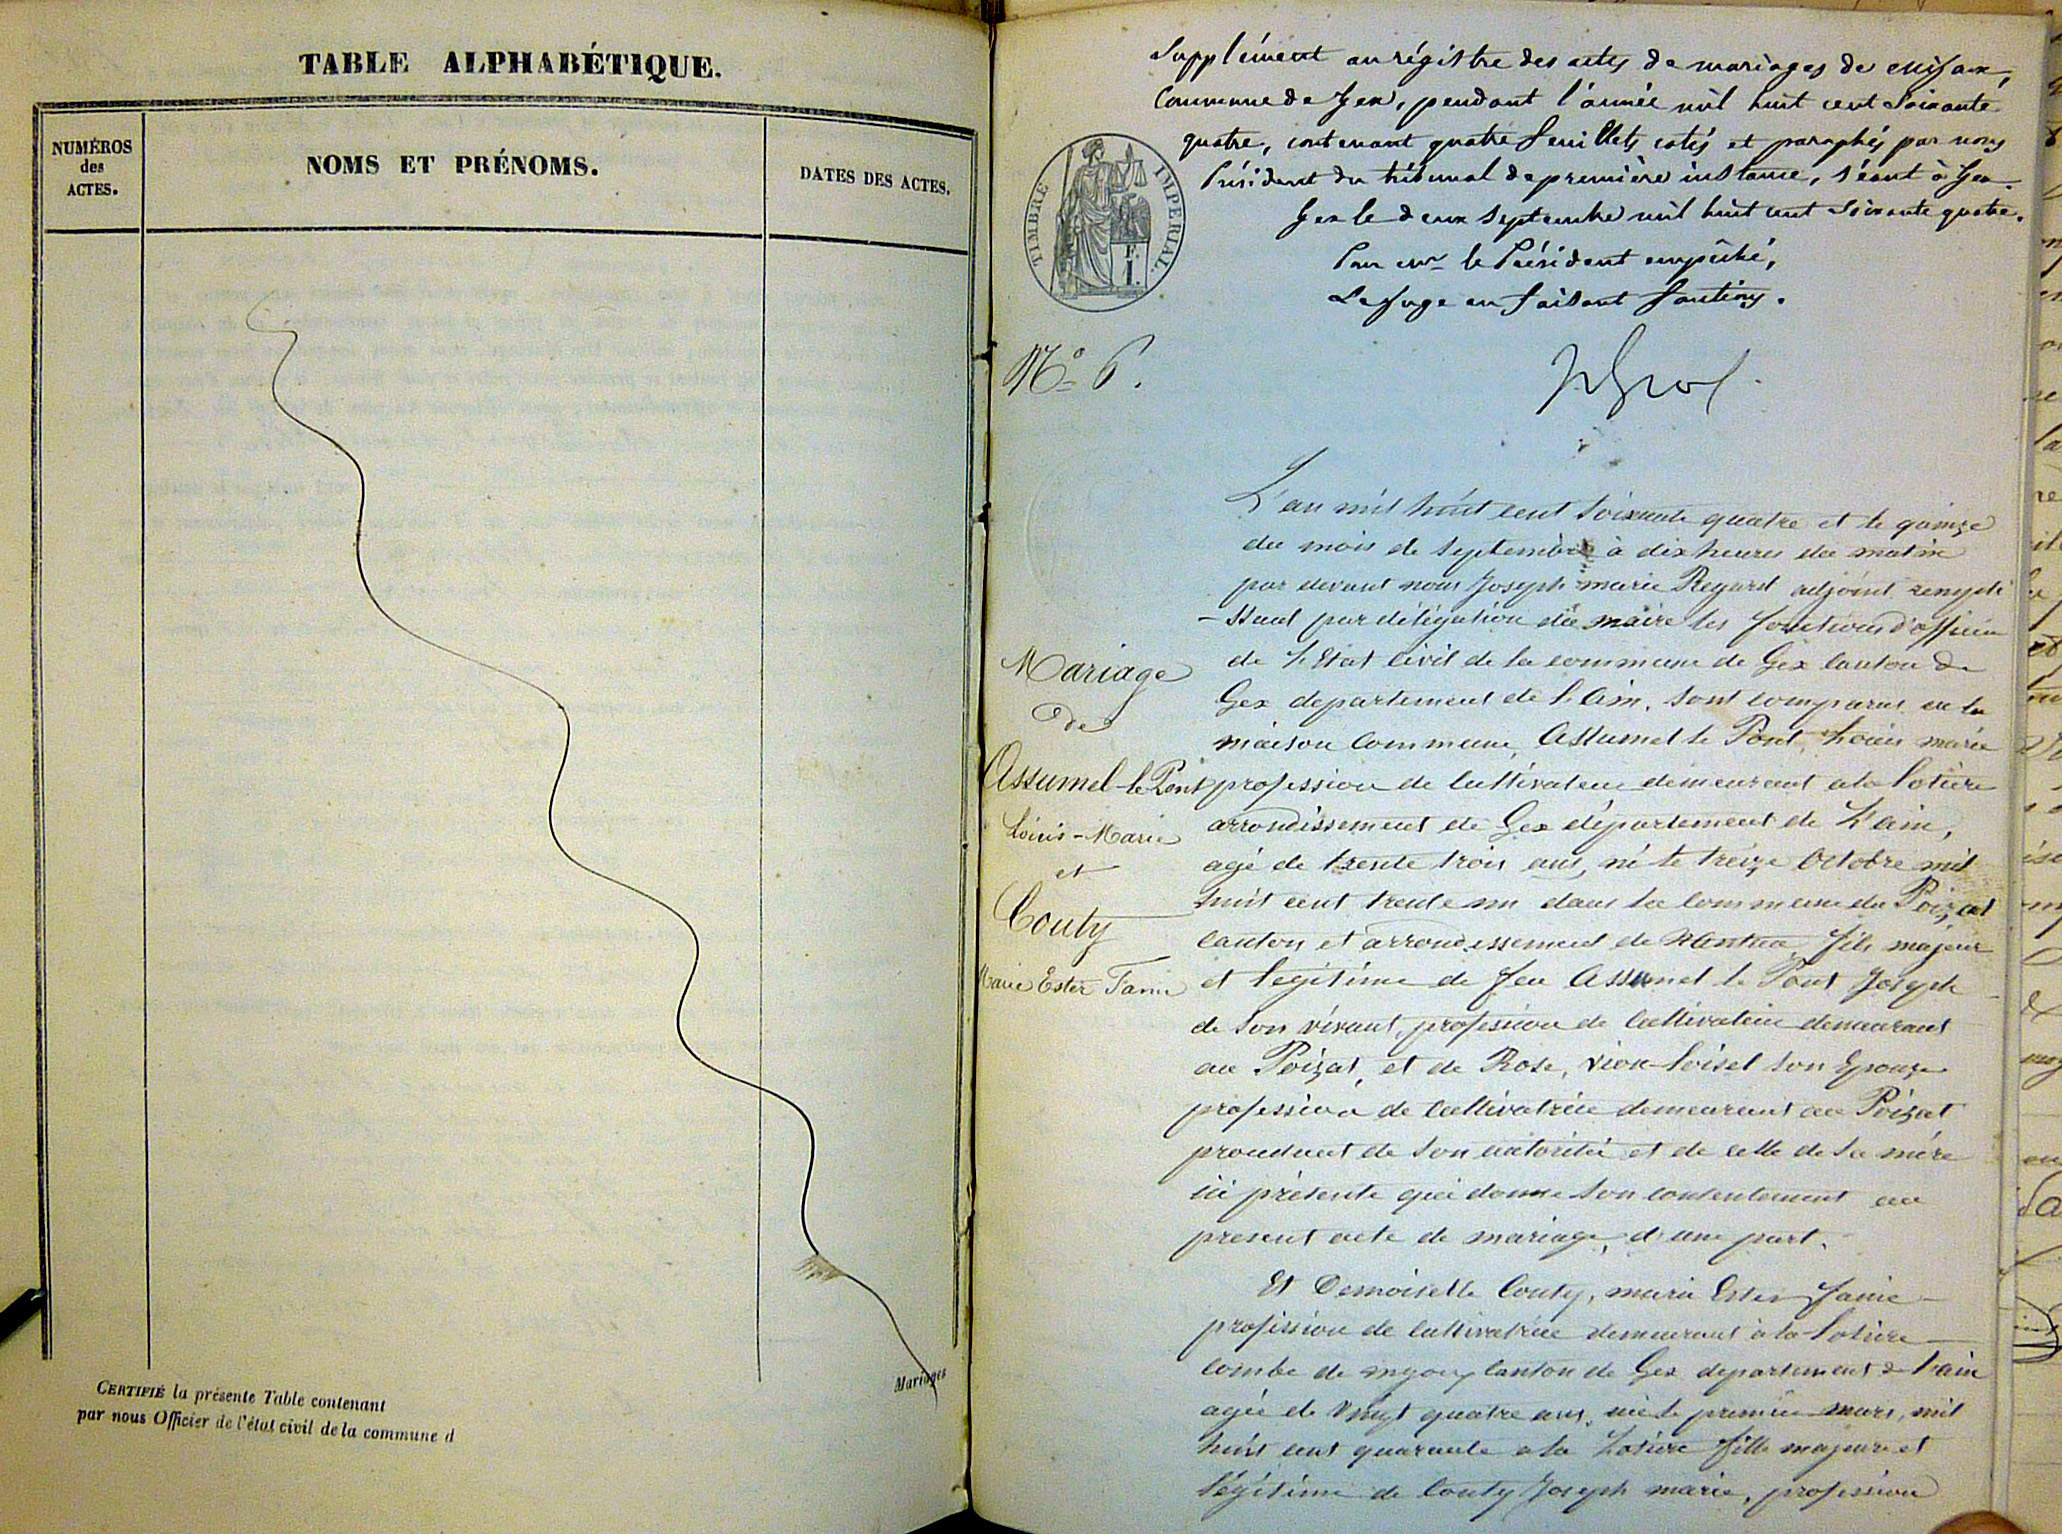 TABLE ALPHABÉTIQUE.
NUMÉROS
des
ACTES.
NOMS ET PRÉNOMS.
DATES DES ACTES.
Mariages
CERTIFIÉ la présente Table contenant
par nous Officier de l'état civil de la commune d
Supplément au régistre des actes de mariages de
Commune de Gex, pendant l'année mil huit cent soixante
quatre, contenant quatre feuillets cotés et paraphés par nous
Président du tribunal de première instance, séant à Gex.
Gex le deux septembre mil huit cent soixante quatre.
Pour Mr le Président empêché,
Le Juge en faisant fonctions.
TIMBRE IMPERIAL.
E.
I.
No 6.
L'an mil huit cent soixante quatre et le quinze
du mois de septembre à dix heures du matin
par devant nous Joseph marie Regard adjoint rempli
-ssant par délégation du maire les fonctions d'officier
de l'Etat civil de la commune de Gex canton de
Gex departement de l'Ain, sont comparus en la
maison commune, Assumel le Pont, Louis marie
profession de cultivateur demeurant a la
arrondissement de Gex département de L'ain,
agé de trente trois ans, né le treize Octobre mil
huit cent trente un dans la commune du Poizat
canton et arrondissement de Nantua fils majeur
et legitime de feu Assumel le Pont Joseph
de son vivant, profession de cultivateur demeurant
au Poizat, et de Rose, Vion-loisel son Epouze
profession de cultivatrice demeurant au Poizat
de son autorité et de celle de sa mére
ici présente qui donne son consentement au
present acte de mariage, d'une part.
Et Demoiselle Couty, marie Ester Fanie
profession de cultivatrice demeurant à la
combe de canton de Gex departement de l'ain
agée de vingt quatre ans, née le premier mars, mil
huit cent quarante a la fille majeure et
légitime de Couty Joseph marie, profession
Mariage
de
Assumel-le-Pont
Louis-Marie
et
Couty
Marie Ester Fanie